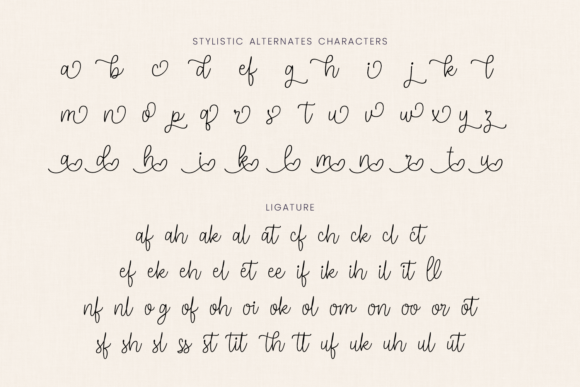 STYLISTIC ALTERNATES CHARACTERS
a b c d ef g h i j k l
m n o p q r s t u v w x y z
a d h i k l m n r t u
LIGATURE
af ah ak al at cf ch ck cl ct
ef ek eh el et ee if ik ih il it ll
nf nl og of oh oi ok ol om on oo or ot
sf sh sl ss st tit th tt uf uk uh ul ut